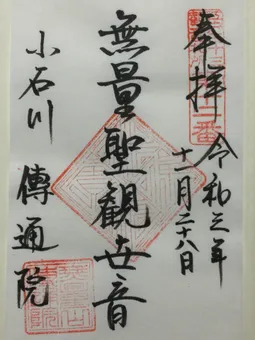 奉拝
十二番
令和三年
十一月二十八日
無量聖観世音
小石川
傳通院